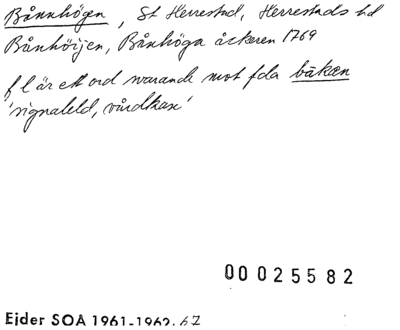 Bånnhögen, St Herrestad, Herrestads hd
Bånhöijen, Bånhöga åckeren 1769
fl är ett ord svarande mot fda bāken
'signaleld, vårdkase'
00025582
Ejder SOA 1961-1962. 62